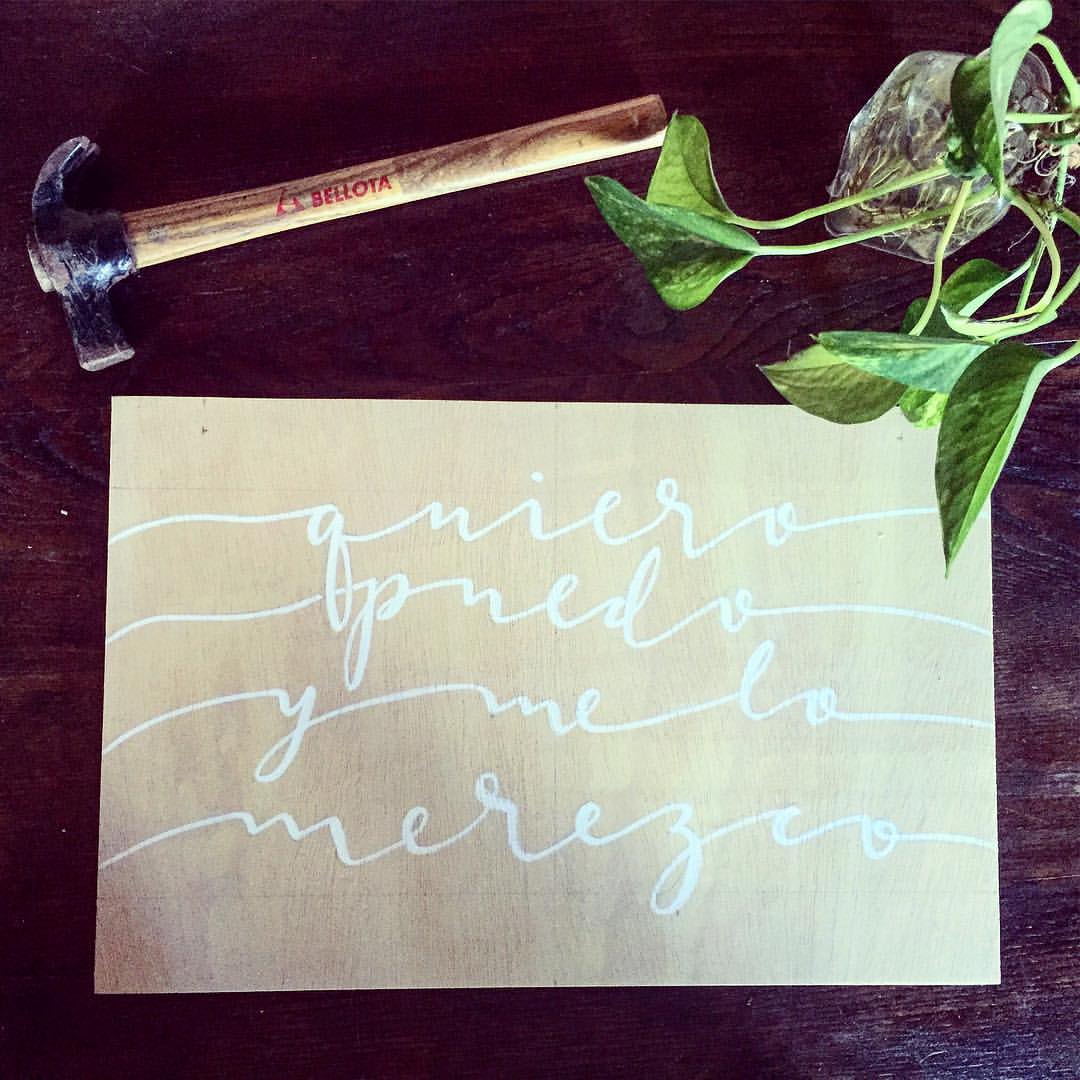 BELLOTA
quiero
puedo
y me lo
merezco